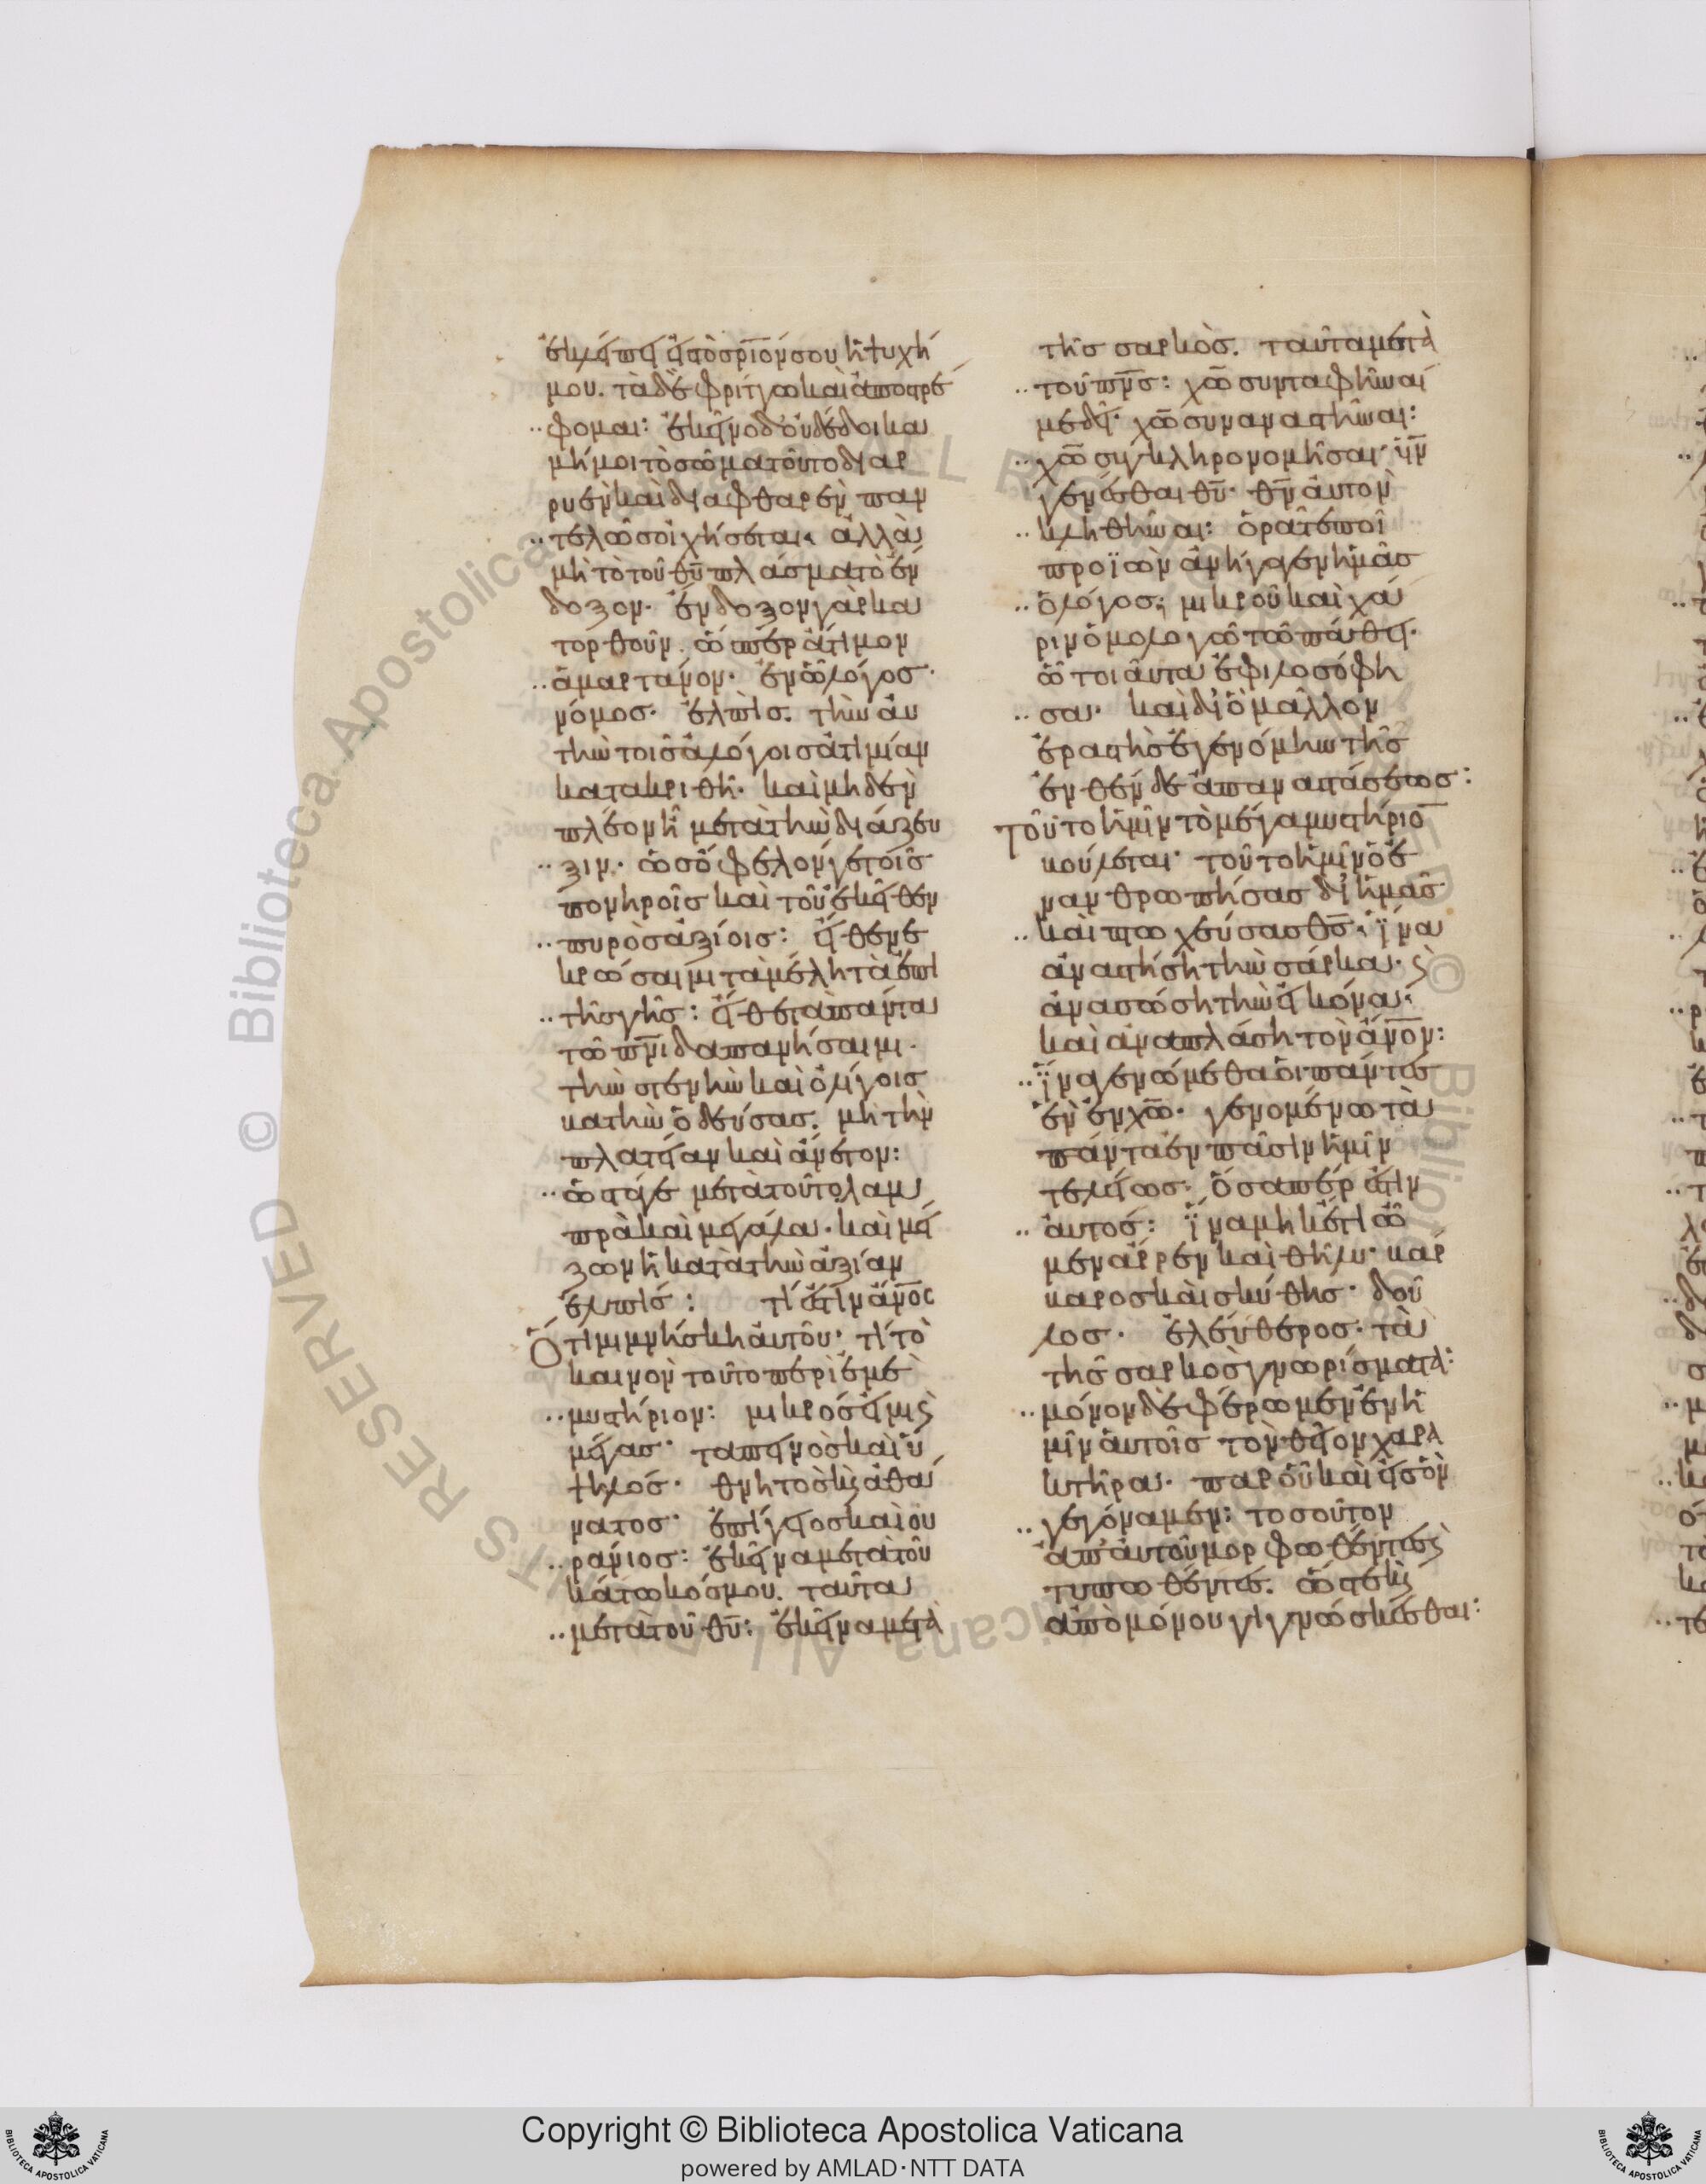 ἐκλείπει εἰ τὸ σριον σου ἡ ψυχή
μου. τὰ δὲ φρίττω καὶ ἀποστρέ
φομαι: ἐκεῖνο δ' οὐ δέδοικα
μή μοι τὸ σῶμα τοῦτο διαρ
ρυὲν καὶ διαφθαρὲν παν
τελῶς οἰχήσεται. ἀλλὰ
μὴ τὸ τοῦ θυ πλάσμα τὸ ἔν
δοξον. ἔνδοξον γὰρ κα
τορθοῦν. ὥσπερ ἄτιμον
ἁμαρτάνον. ἐν ᾧ λόγος.
νόμος. ἐλπὶς. τὴν αὐ
τὴν τοῖς ἀλόγοις ἀτιμίαν
κατακριθῆ. καὶ μηδὲν
πλέον ἦ μετὰ τὴν διάζευ
ξιν. ὡς ὄφελόν γε τοῖς
πονηροῖς καὶ τοῦ ἐκεῖθεν
πυρὸς ἀξίοις: εἴθε νε
κρώσαιμι τὰ μέλη τὰ ἐπὶ
τῆς γῆς: εἴθε τὰ πάντα
τῶ πνι δαπανήσαιμι.
τὴν στενὴν καὶ ὀλίγοις
βατὴν ὁδεύσας. μὴ τὴν
πλατεῖαν καὶ ἄνετον:
ὥστε γε μετὰ τοῦτο λαμ
πρὰ καὶ μεγάλα. καὶ μεί
ζων ἢ κατὰ τὴν ἀξίαν
ἐλπίς: τί ἐστιν ἄνος
Ὅτι μιμνήσκη αὐτοῦ. τί τὸ
καινὸν τοῦτο περὶ ἐμὲ
μυστήριον: μικρός εἰμι κ
μέγας. ταπεινὸς καὶ ὑ
ψηλός. θνητὸς κ ἀθά
νατος. ἐπίγειος καὶ οὐ
ράνιος: ἐκεῖνα μετὰ τοῦ
κάτω κόσμου. ταῦτα
μετὰ τοῦ θυ: ἐκεῖνα μετὰ
τῆς σαρκὸς. ταῦτα μετὰ
τοῦ πνς: χῶ συνταφῆναί
με δεῖ. χῶ συναναστῆναι:
χῶ συγκληρονομῆσαι. υν
γενέσθαι θυ. θν αὐτὸν
κληθῆναι: ὁρᾶτε ποῖ
προϊὼν ἀνήγαγεν ἡμᾶς
ὁ λόγος; μικροῦ καὶ χά
ριν ὁμολογῶ τῶ πάθει.
ᾧ τοιαῦτα ἐφιλοσόφη
σα. καὶ δι' ὃ μᾶλλον
ἐραστὴς ἐγενόμην τῆς
ἐνθένδε ἀπαναστάσεως:
Τοῦτο ἡμῖν τὸ μέγα μυστήριο
βούλεται. τοῦτο ἡμῖν ὁ ἐ
νανθρωπήσας δι' ἡμᾶς
καὶ πτωχεύσας θς. ἵνα
ἀναστήση τὴν σάρκα. κ
ἀνασώση τὴν εἰκόνα.
καὶ ἀναπλάση τὸν ἄνον:
ἵνα γενώμεθα οἱ πάντες
ἓν ἐν χῶ. γενομένω τὰ
πάντα ἐν πᾶσιν ἡμῖν
τελείως. ὅσαπέρ ἐστιν
αὐτός: ἵνα μηκέτι ὦ
μεν ἄρρεν καὶ θῆλυ. βάρ
βαρος καὶ σκύθης. δοῦ
λος. ἐλεύθερος. τὰ
τῆς σαρκὸς γνωρίσματα:
μόνον δὲ φέρωμεν ἐν ἡ
μῖν αὐτοῖς τὸν θεῖον χαρα
κτῆρα. παρ' οὗ καὶ εἰς ὃν
γεγόναμεν: τοσοῦτον
ἀπ' αὐτοῦ μορφωθέντες κ
τυπωθέντες. ὥστε κ
ἀπὸ μόνου γιγνώσκεσθαι: